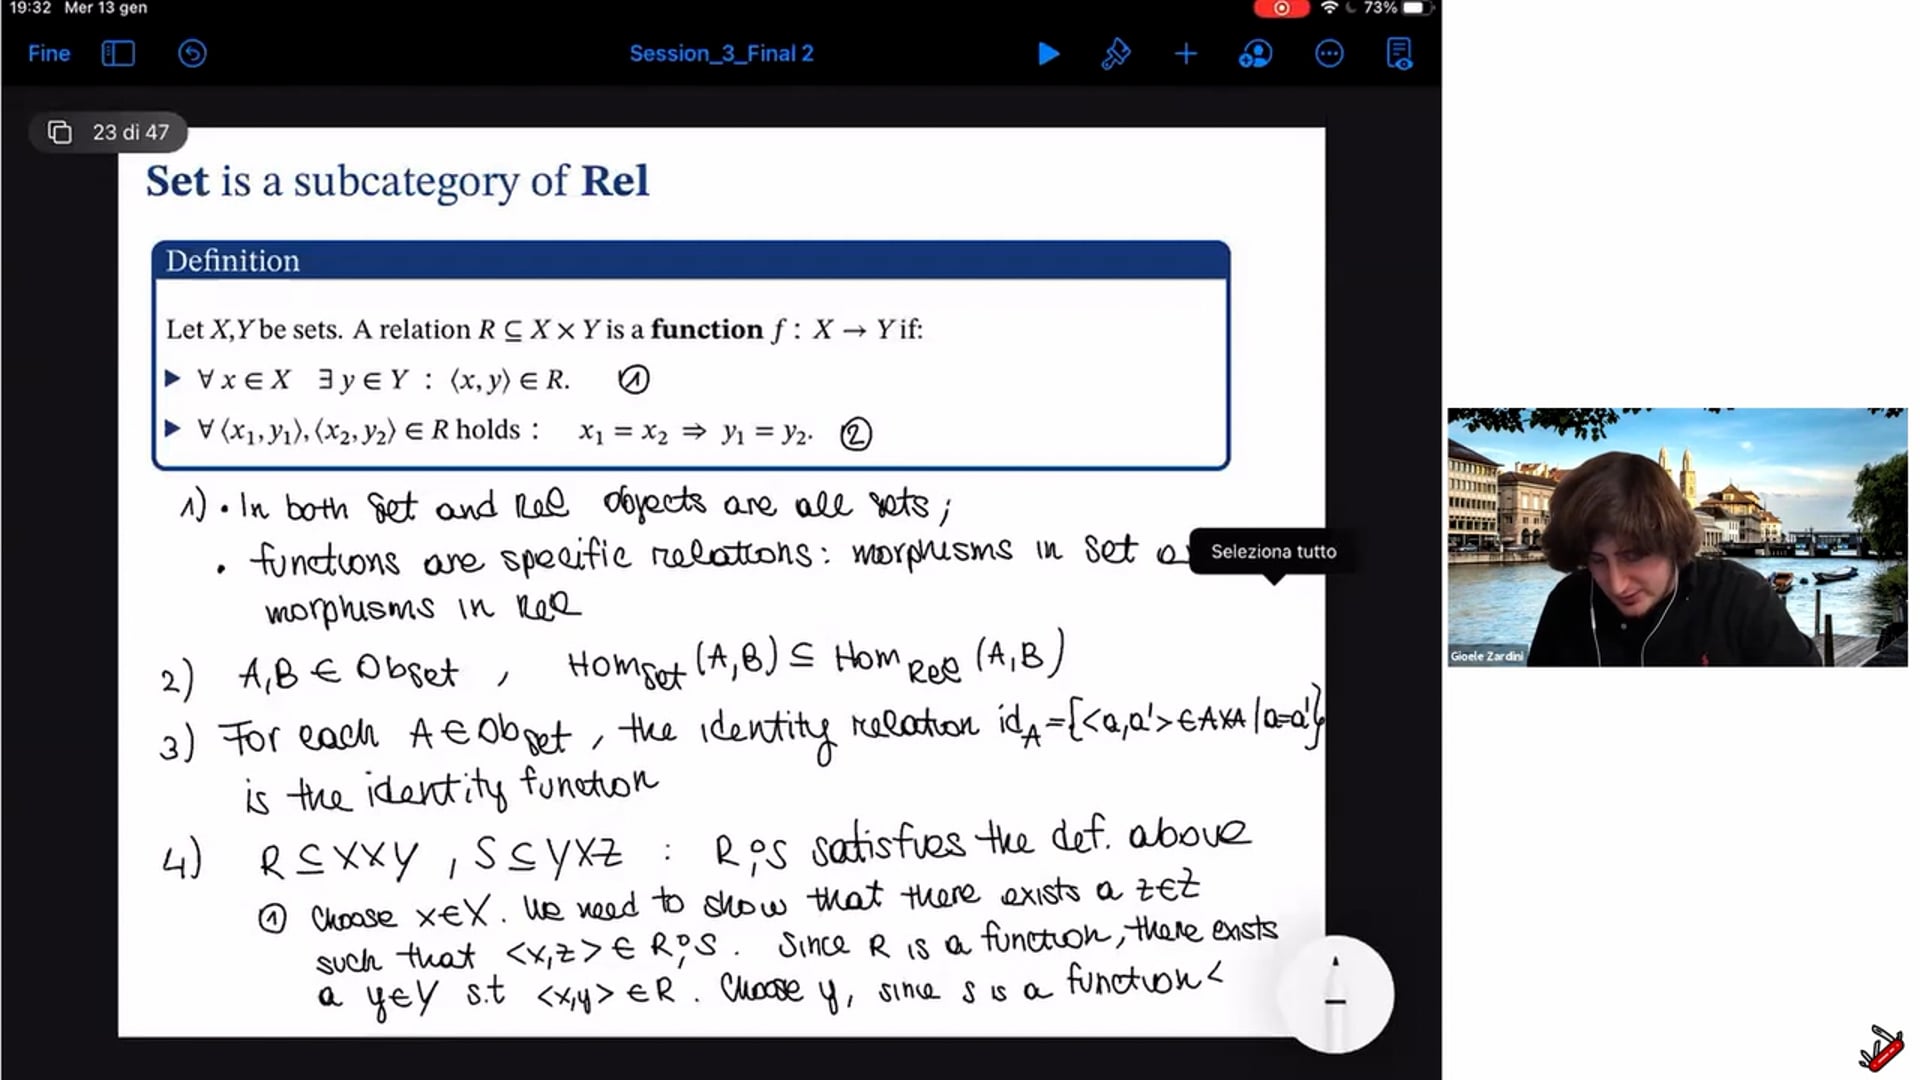 19:32 Mer 13 gen
73%
Fine
Session_3_Final 2
23 di 47
Set is a subcategory of Rel
Definition
Let X,Y be sets. A relation R ⊆ X × Y is a function f : X → Y if:
▶ ∀ x ∈ X ∃ y ∈ Y : ⟨x, y⟩ ∈ R. ①
▶ ∀ ⟨x₁, y₁⟩, ⟨x₂, y₂⟩ ∈ R holds : x₁ = x₂ ⇒ y₁ = y₂. ②
1) • In both Set and Rel objects are all sets;
• functions are specific relations: morphisms in Set
Seleziona tutto
morphisms in Rel
2) A,B ∈ Ob_Set , Hom_Set (A,B) ⊆ Hom_Rel (A,B)
3) For each A ∈ Ob_Set , the identity relation id_A = {<a,a'> ∈ A×A | a=a'}
is the identity function
4) R ⊆ X×Y , S ⊆ Y×Z : R⨟S satisfies the def. above
① Choose x∈X. We need to show that there exists a z∈Z
such that <x,z> ∈ R⨟S. Since R is a function, there exists
a y∈Y s.t <x,y> ∈ R. Choose y, since S is a function <
Gioele Zardini